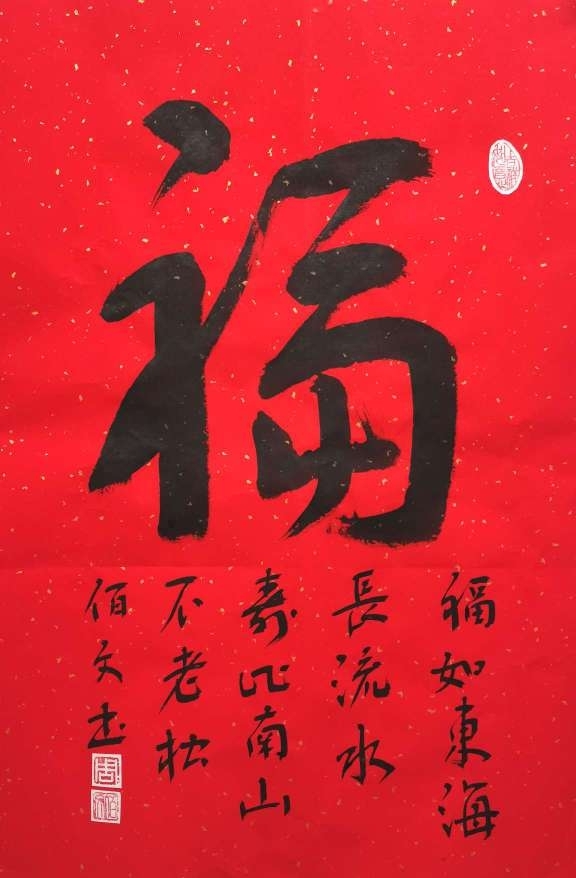 福
福如東海
長流水
壽比南山
不老松
佰文书